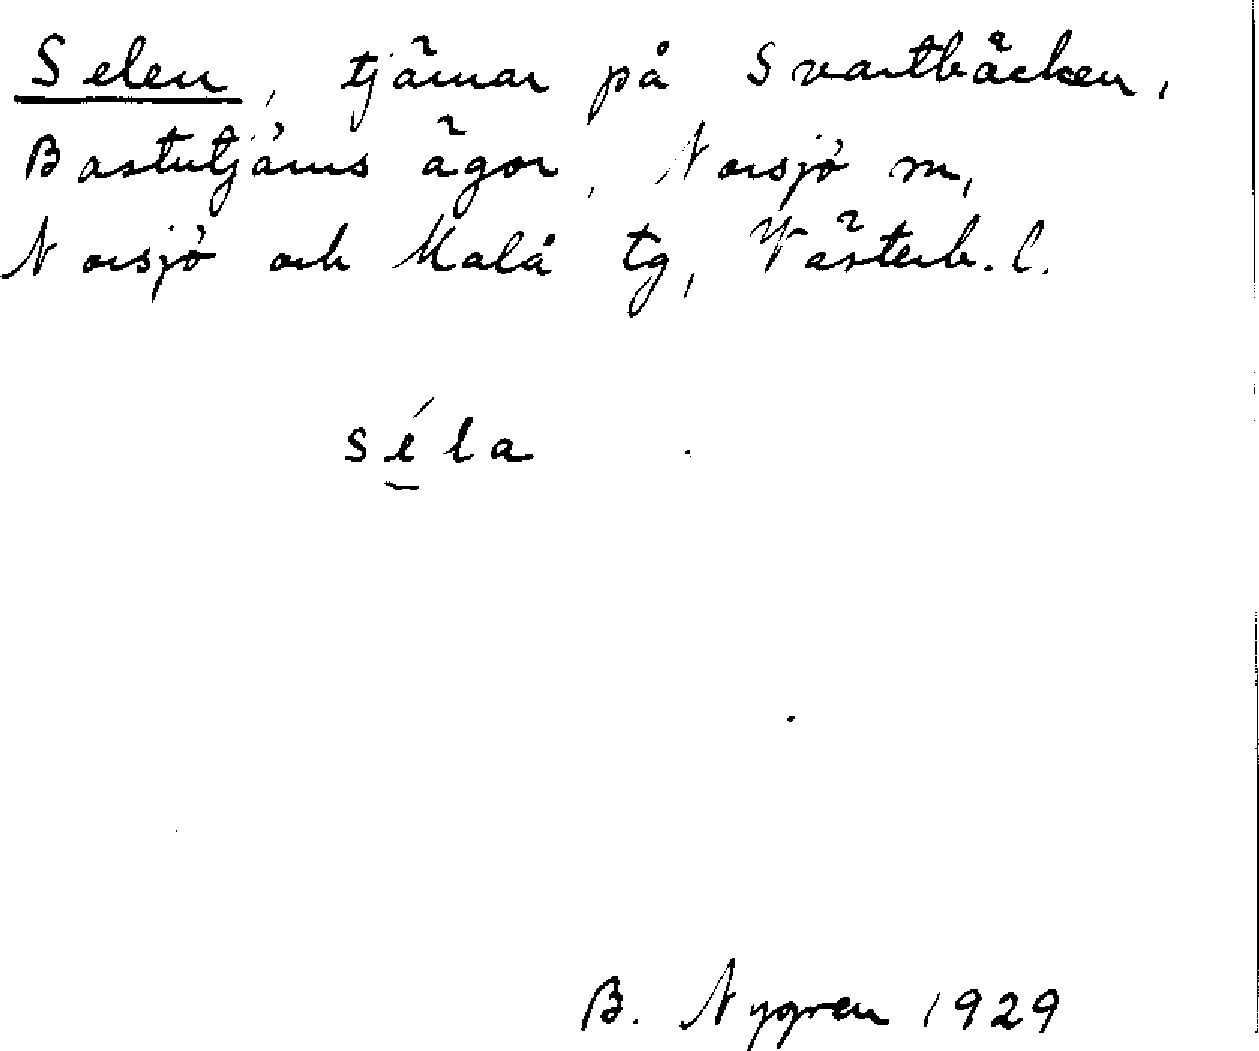 Selen, tjärnar på Svartbäcken,
Bastutjärns ägor, Norsjö sn,
Norsjö och Malå tg, Västerb. l.
séla
B. Nygren 1929